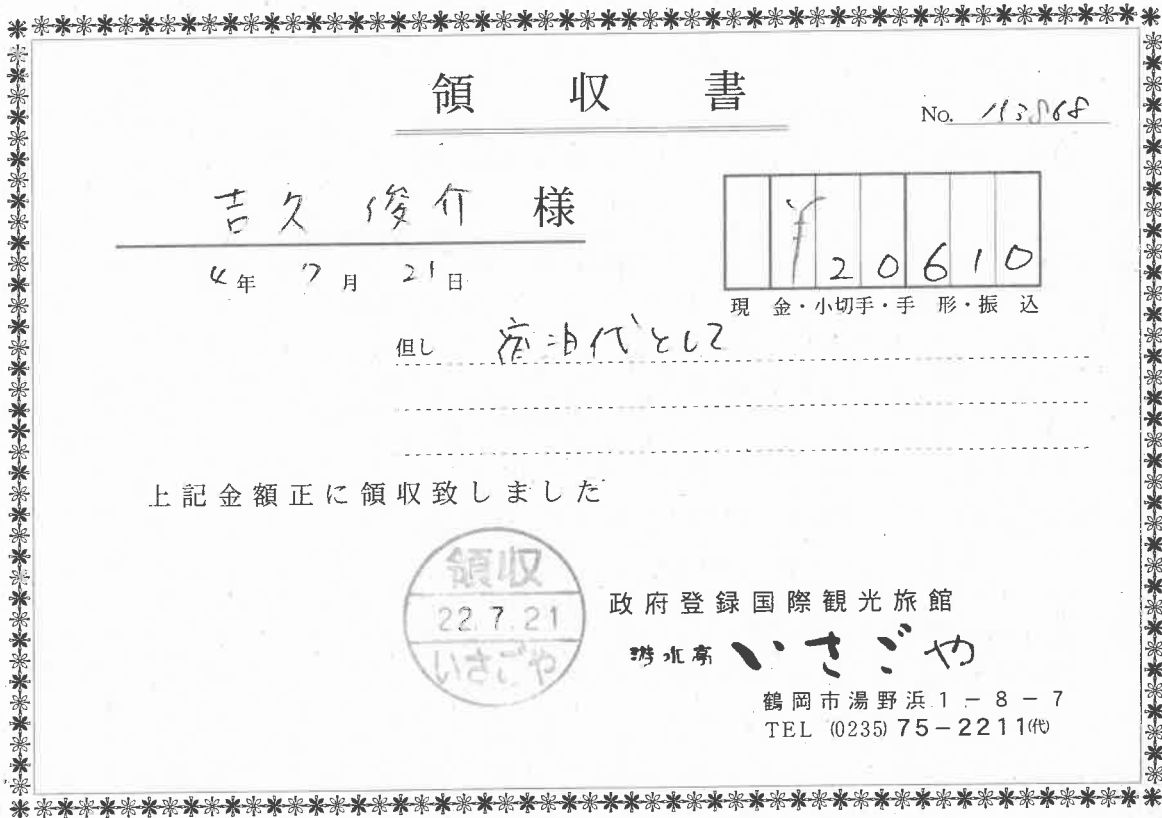 領収書
No. 113868
吉久 俊介 様
4年 7月 21日
¥20610
現金・小切手・手形・振込
但し 宿泊代として
上記金額正に領収致しました
領収
22.7.21
いさごや
政府登録国際観光旅館
游水亭 いさごや
鶴岡市湯野浜1-8-7
TEL (0235) 75-2211(代)